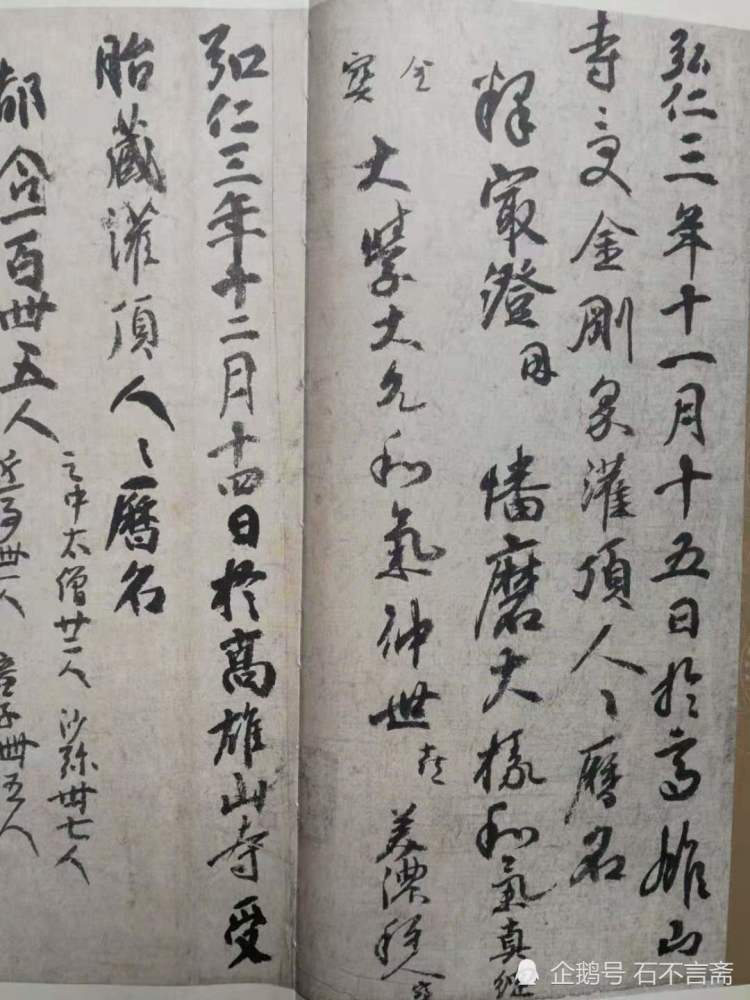 弘仁三年十一月十五日於高雄山
寺〻受金剛界灌頂人〻暦名
釋最澄 因 播磨大掾和氣真綱
金
寶
大學大允和氣仲世 喜 美濃種人 寶
弘仁三年十二月十四日於高雄山寺受
胎藏灌頂人〻暦名
都合一百卌五人
之中太僧廿二人 沙弥卅七人
近事卌一人 童子卌五人
企鹅号 石不言斋